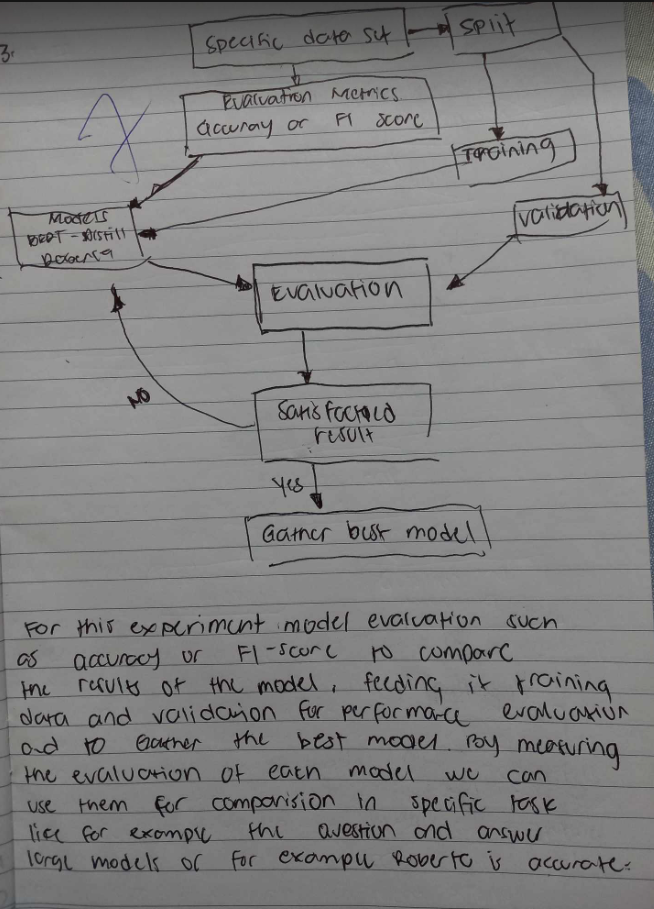 3.
Specific data set
split
Evaluation Metrics
accuray or F1 score
Training
Validation
Models
BERT - Distill
Roberta
Evaluation
Satisfactied
result
NO
Yes
Gather best model
For this experiment model evaluation such
as accuracy or F1-score to compare
the results of the model, feeding it training
data and validaion for performace evaluation
and to Gather the best model. By measuring
the evaluation of each model we can
use them for comparision in specific task
like for example the question and answer
large models or for example Roberta is accurate.